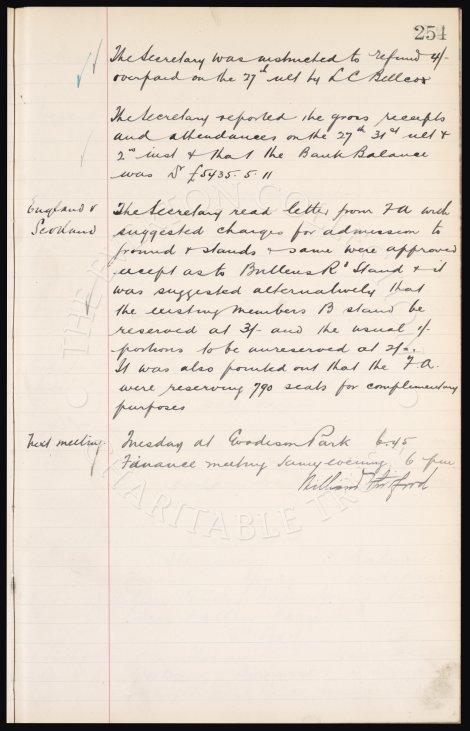 254
The Secretary was instructed to refund 4/-
overpaid on the 27th ult by L C Bellcox
The Secretary reported the gross receipts
and attendances on the 27th 31st ult &
2nd inst & that the Bank Balance
was Dr £5435. 5. 11
England v
Scotland
The Secretary read letter from F A with
suggested charges for admission to
ground & stands & same were approved
except as to Bullens Rd Stand & it
was suggested alternatively that
the existing Members B stand be
reserved at 3/- and the usual 1/-
portions to be unreserved at 2/-.
It was also pointed out that the F A.
were reserving 790 seats for complimentary
purposes
Next meeting.
Tuesday at Goodison Park 6.45
Finance meeting same evening 6 pm
THE EVERTON CO
CHARITABLE TR